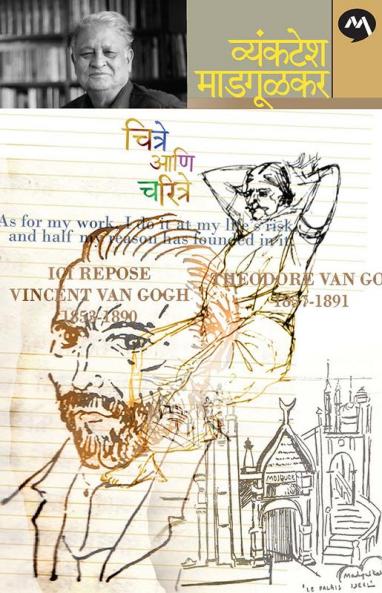 व्यंकटेश
माडगूळकर
चित्रे
आणि
चरित्रे
As for my work, I do it at my life's risk
and half my reason has founded in it
ICI REPOSE
VINCENT VAN GOGH
1853-1890
THEODORE VAN GO
1857-1891
MOSQUEE
"LE PALAIS IDEAL"